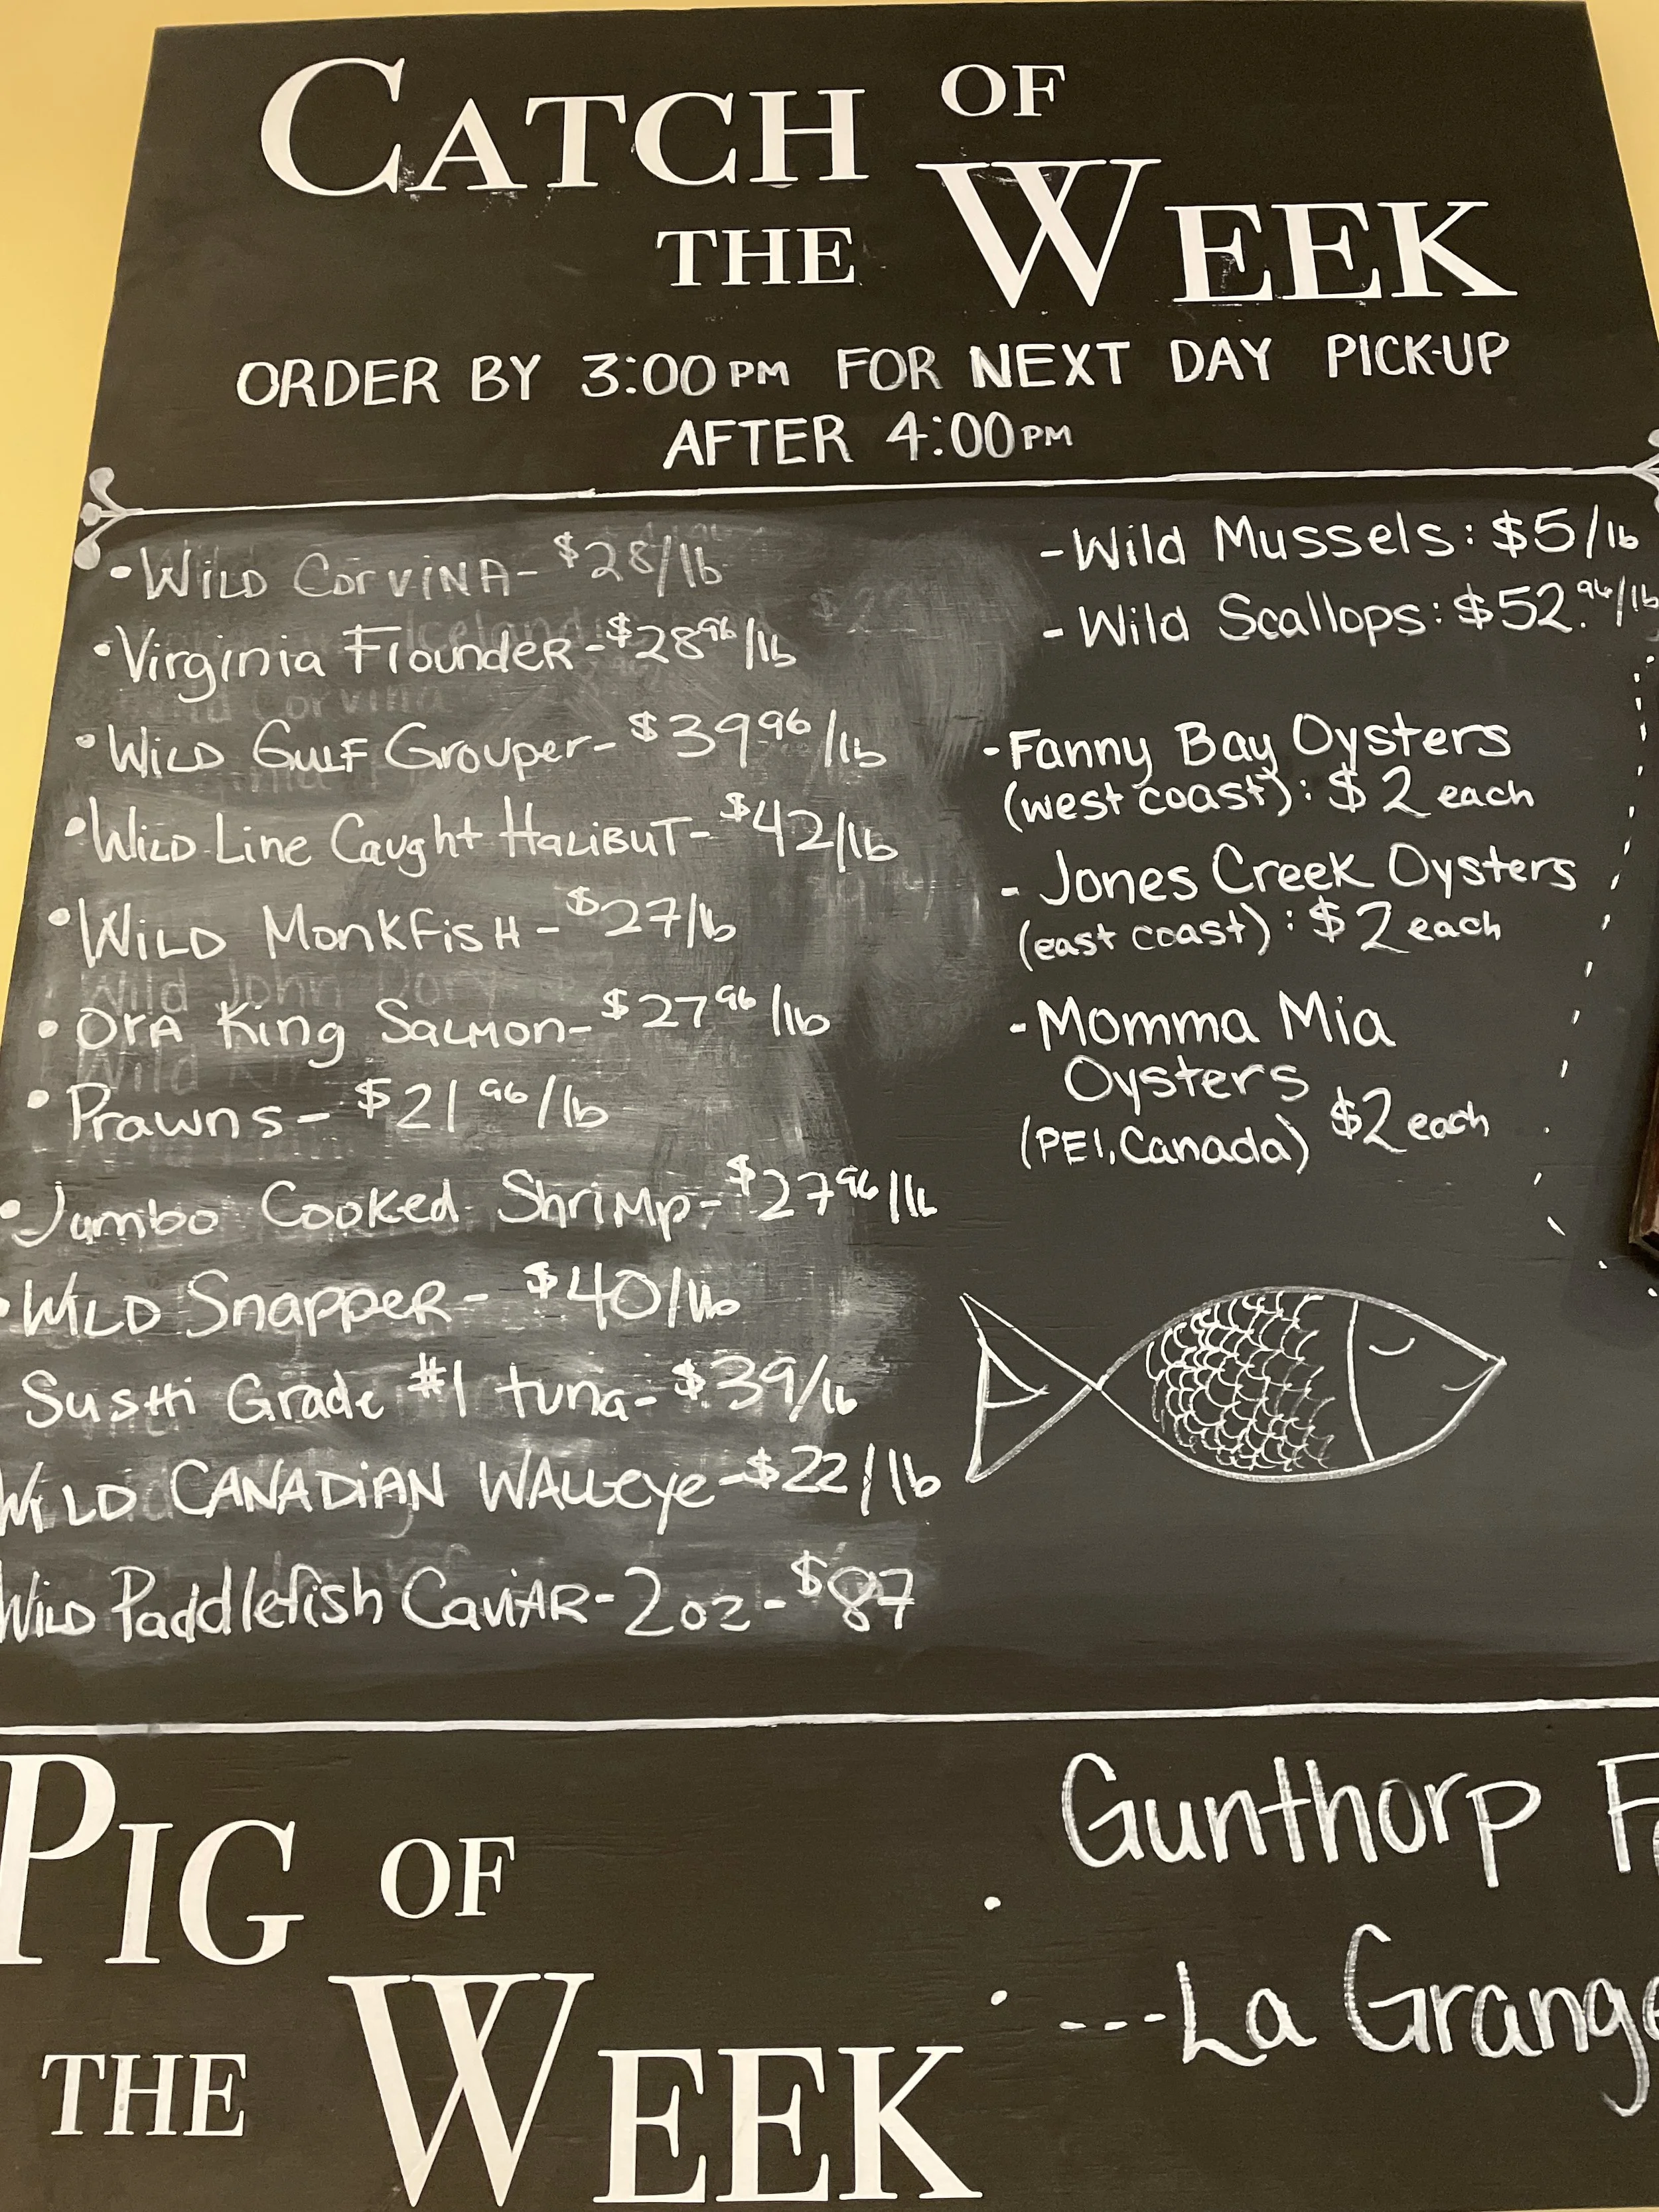 CATCH OF
THE WEEK
ORDER BY 3:00PM FOR NEXT DAY PICK-UP
AFTER 4:00PM
• WILD CORVINA - $28/lb
• Virginia Flounder - $28.96/lb
• WILD GULF Grouper - $39.96/lb
• WILD Line Caught HALIBUT - $42/lb
• WILD MonkFisH - $27/lb
• OrA King SALMON - $27.96/lb
• Prawns - $21.96/lb
• Jumbo Cooked Shrimp - $27.96/lb
• WILD Snapper - $40/lb
SusHi Grade #1 tuna - $39/lb
WILD CANADiAN WALLeye - $22/lb
WILD Paddlefish CaviAR - 2oz - $87
- Wild Mussels: $5/lb
- Wild Scallops: $52.96/lb
- Fanny Bay Oysters
(west coast): $2 each
- Jones Creek Oysters
(east coast): $2 each
- Momma Mia
Oysters
(PEI, Canada) $2 each
PIG OF
THE WEEK
Gunthorp
--- La Grange